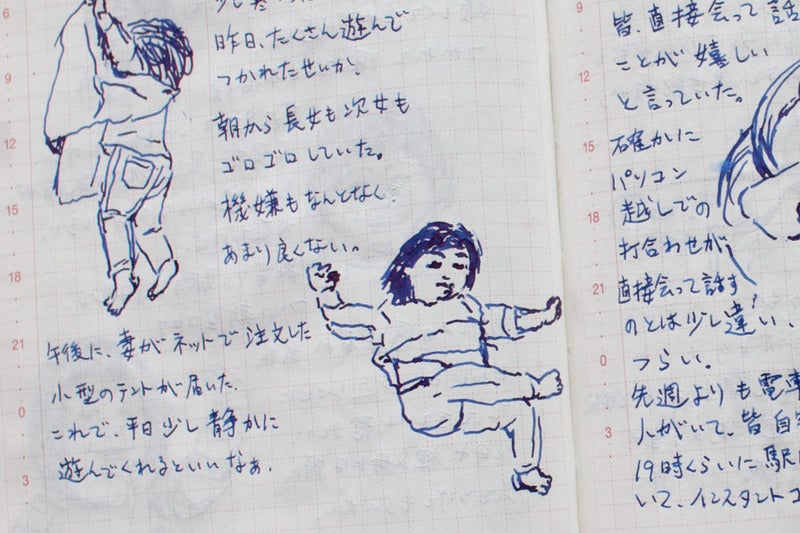 昨日、たくさん遊んで
つかれたせいか、
朝から長女も次女も
ゴロゴロしていた。
機嫌もなんとなく
あまり良くない。
午後に、妻がネットで注文した
小型のテントが届いた。
これで、平日少し静かに
遊んでくれるといいなぁ。
6
9
12
15
18
21
0
3
皆、直接会って話
ことが嬉しい
と言っていた。
確かに
パソコン
越しでの
打合わせが
直接会って話す
のとは少し違い、
つらい。
先週よりも電車
人がいて、皆自
19時くらいに駅
いて、インスタント
9
12
15
18
21
0
3